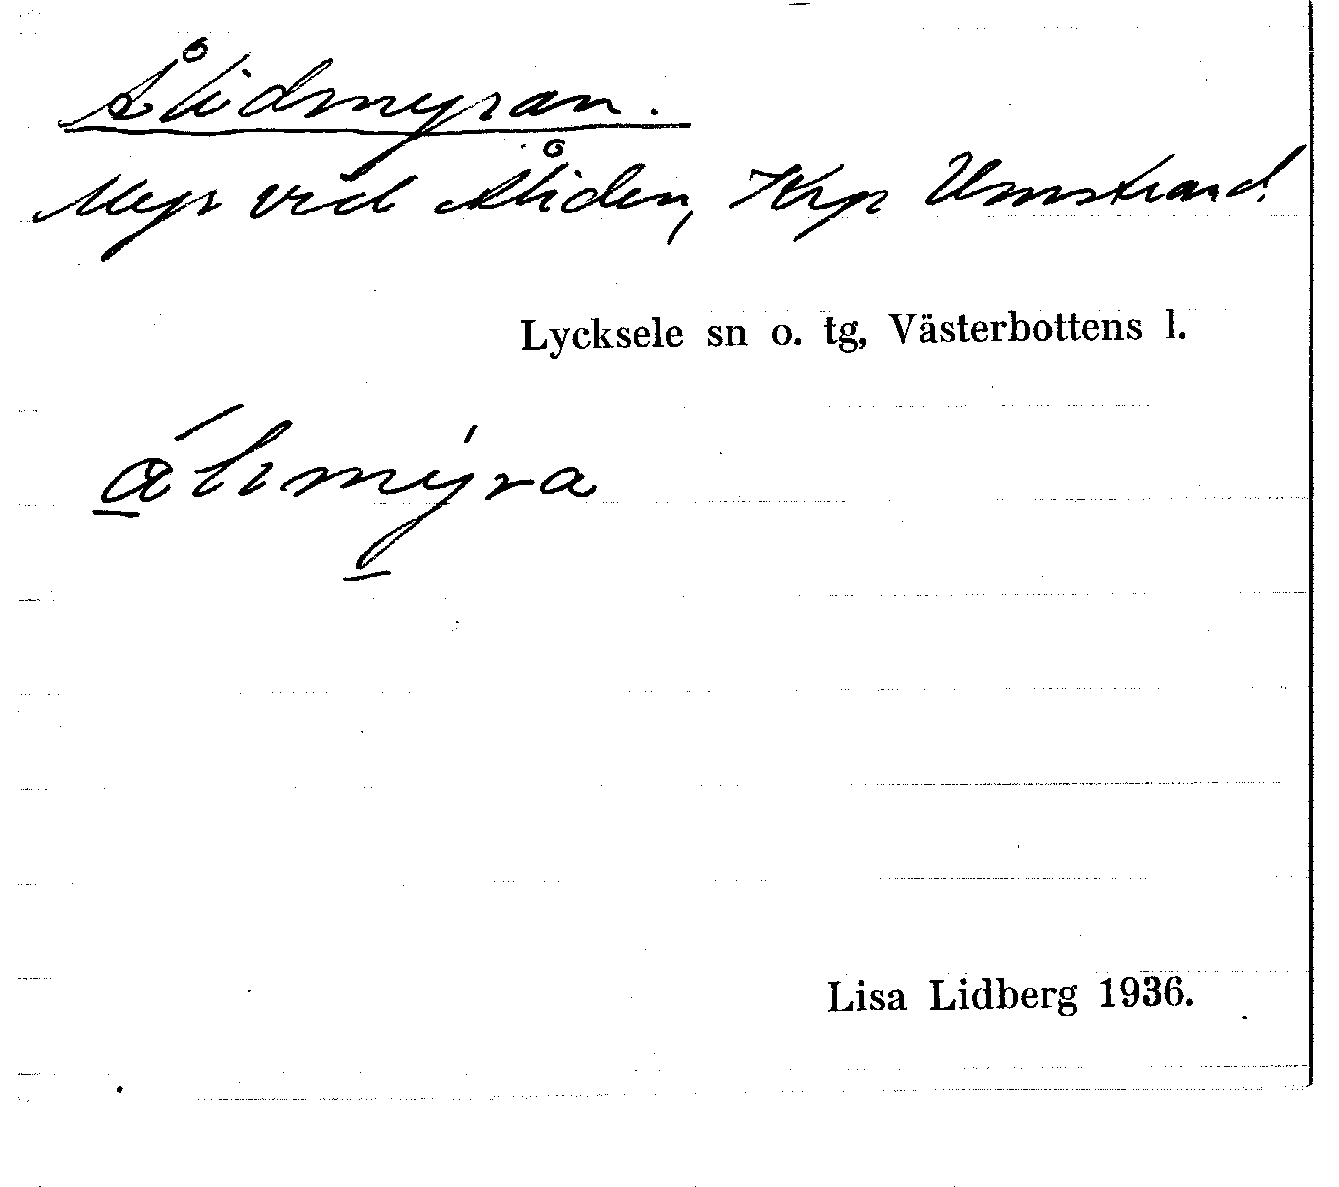 Ålidmyran.
Myr vid Åliden, Krp Umstrand.
Lycksele sn o. tg, Västerbottens l.
á̲limý̲ra
Lisa Lidberg 1936.